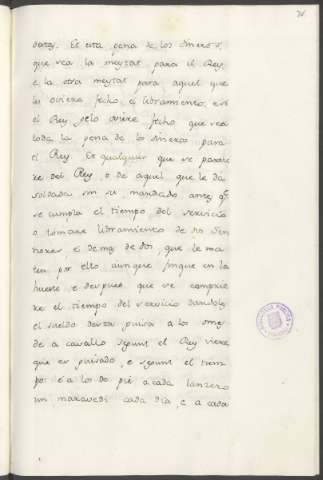 dores. Et esta pena de los dineros,
que sea la meytat para el Rey,
e la otra meytat para aquel que
les oviere fecho el libramiento, e si
el Rey gelo oviere fecho que sea
toda la pena de los dineros para
el Rey. Et qualquier que se partie
re del Rey, o de aquel que le da
soldada sin su mandado antes q.e
se cumpla el tiempo del servicio
o tomare libramiento de dos Sen
nores, e de mas de dos, que le ma
ten por ello aunque finque en la
hueste, e despues que se cumplie
re el tiempo del servicio dandoles
el sueldo desta guisa a los omes
de a cavallo segunt el Rey viere
que es guisado, e segunt el tiem
po: e a los de pie a cada lanzero
un maravedi cada dia, e a cada